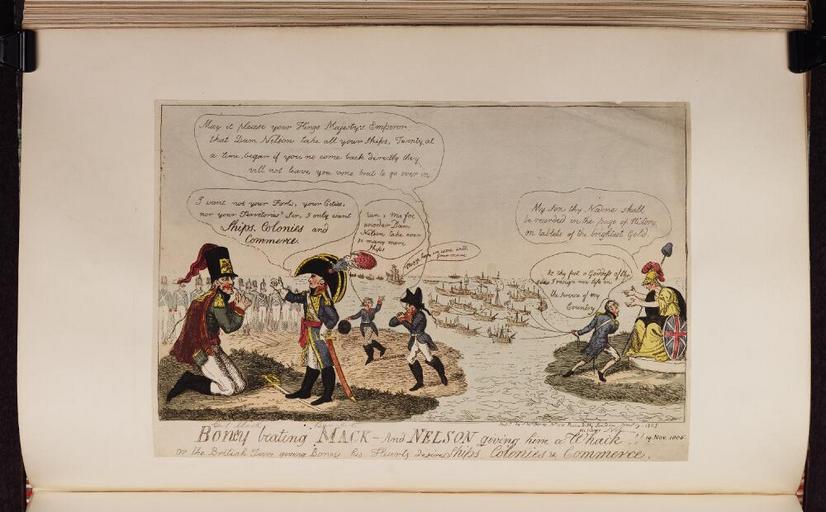 May it please your Kings Majesty's Emperor
that Dam Nelson take all your Ships, Twenty at
a time, begar if you no come back directly they
vill not leave you vone boat to go over in
I want not your Forts, your Cities,
nor your Territories! Sir, I only want
Ships, Colonies and
Commerce
run, me for
anoder Dam
Nelson take ever
so many more
Ships
My Son thy Name shall
be recorded in the page of History
on tablets of the brightest Gold
At thy feet o Goddess of the
I resign my life in
the service of my
Country
BONEY beating MACK - And NELSON giving him a Whack !! 19. Nov. 1805
or the British Tars giving Boney his Hearts desire Ships Colonies & Commerce.